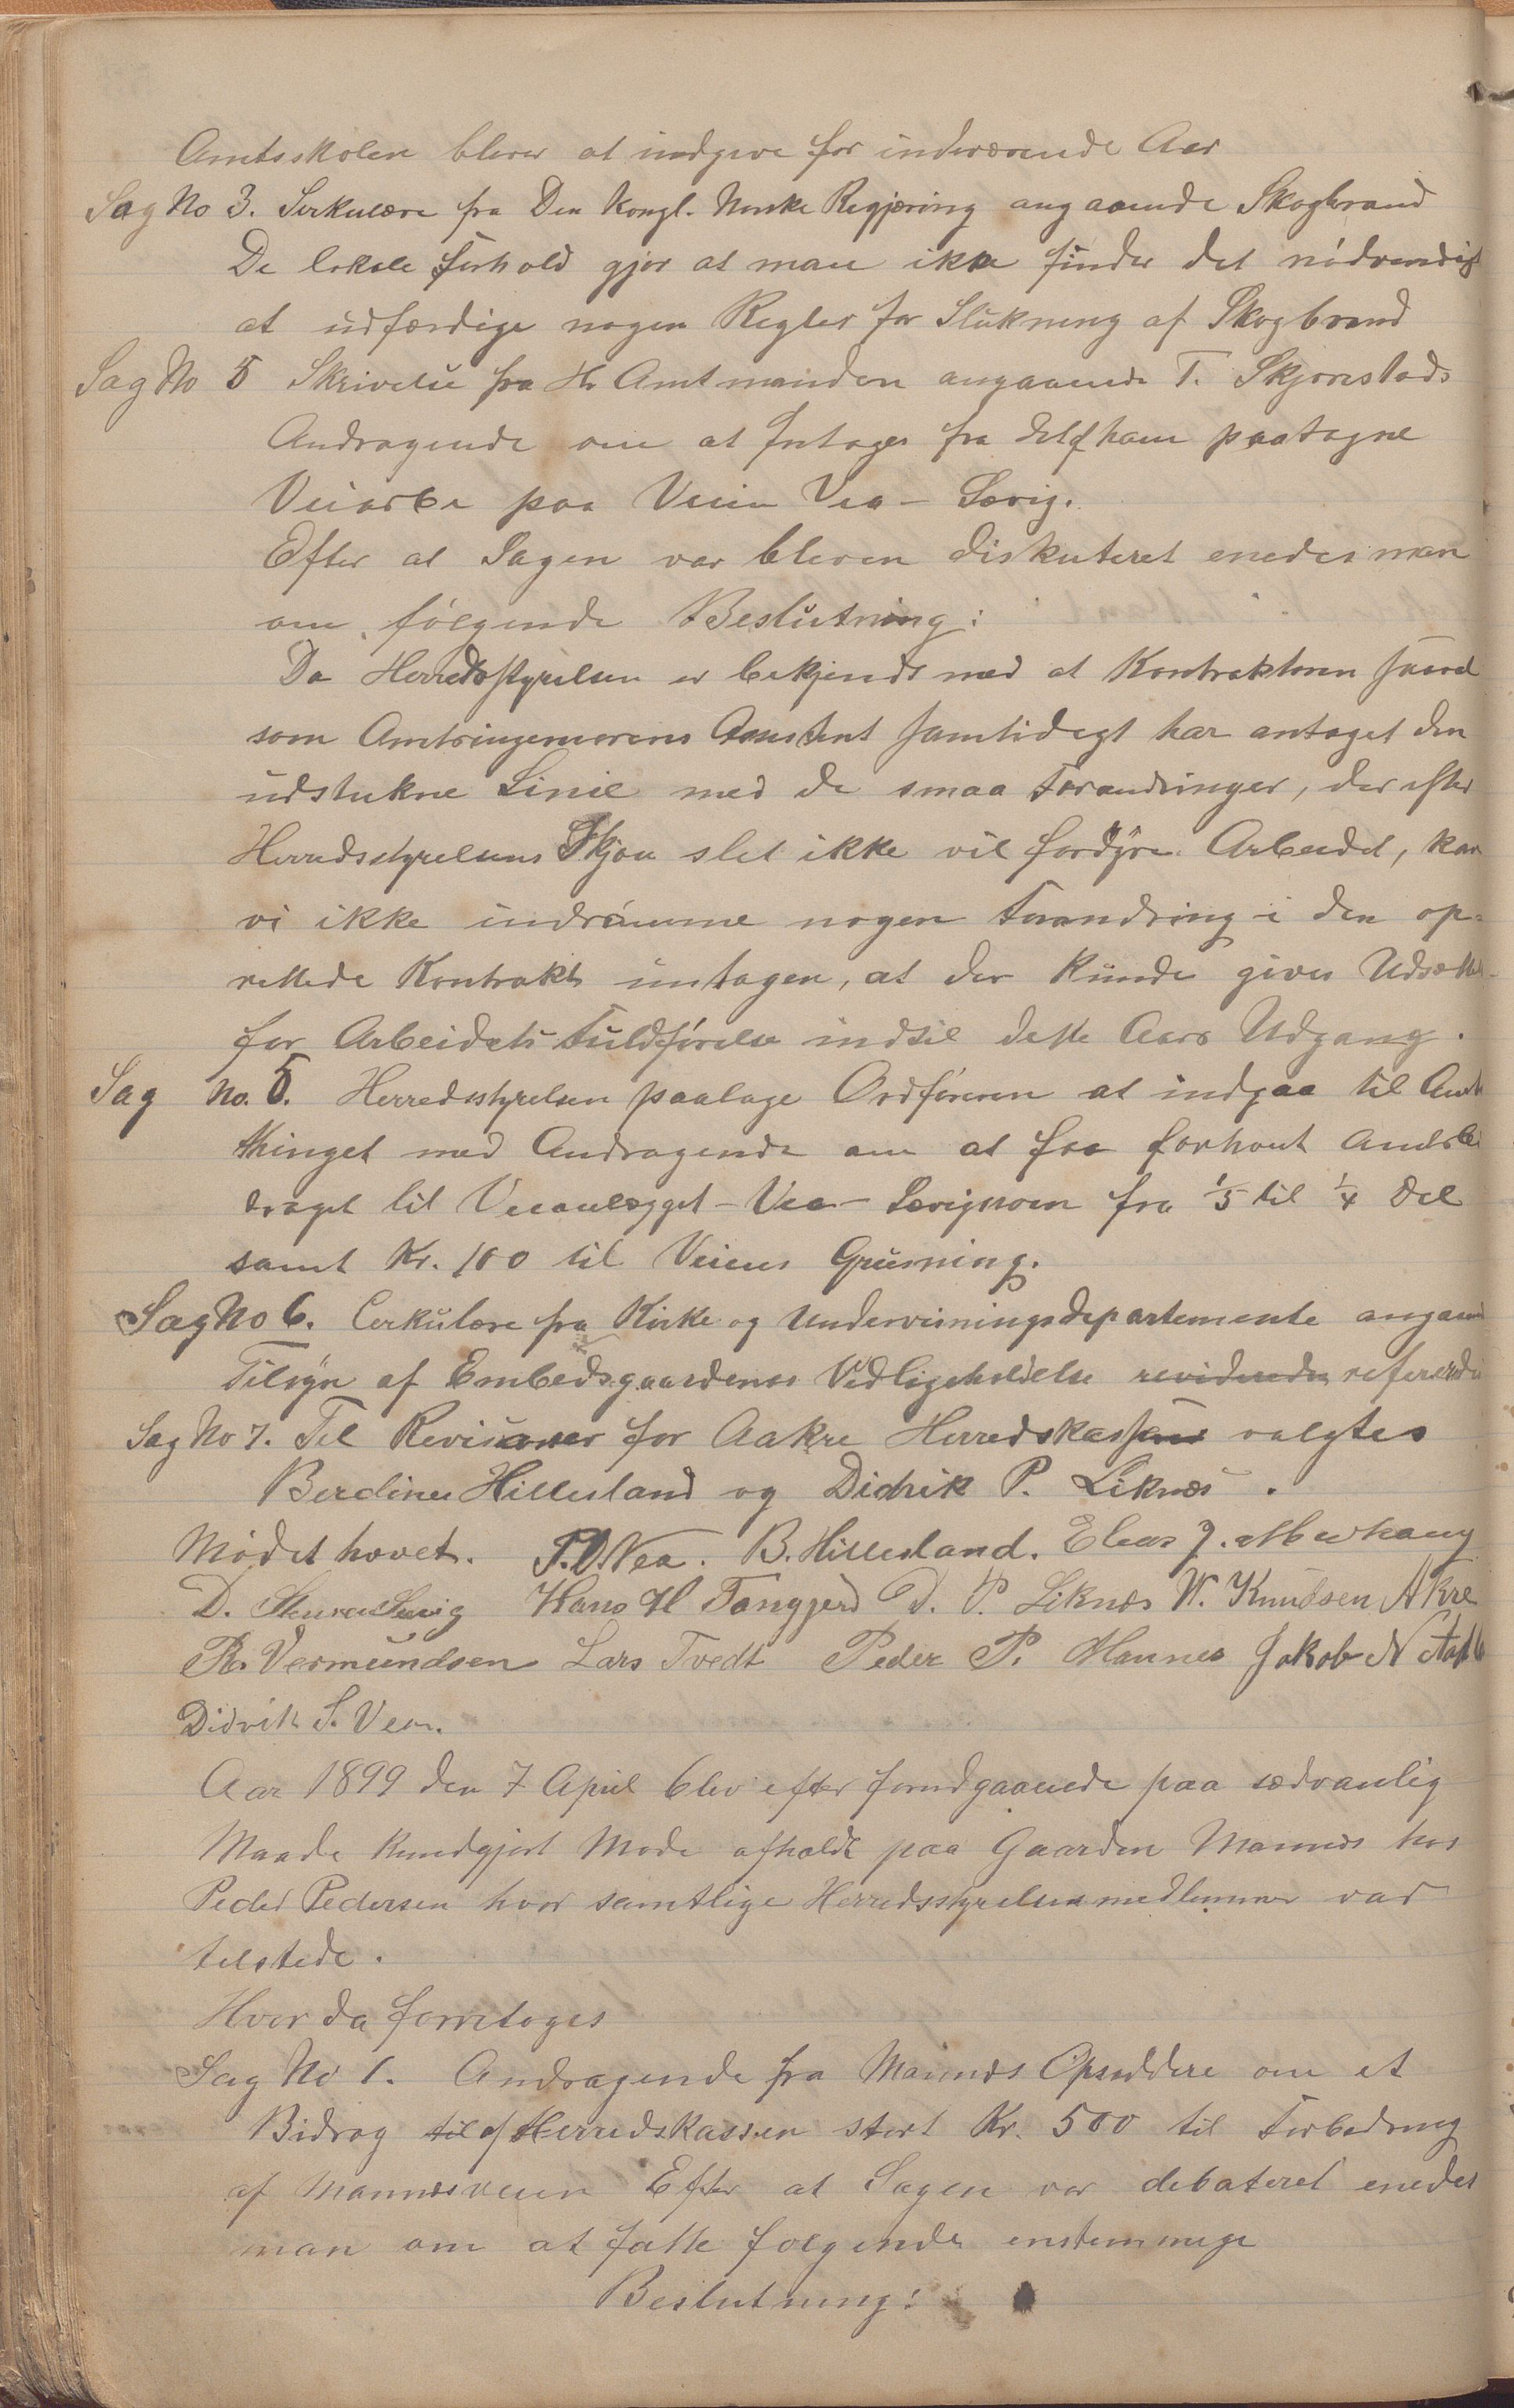 Amtsskolen bliver at indgive for indeværende Aar
Sag No 3. Serkulære fra Den Kongl. Norske Regjæring angaaende Skogbrand
De lokale forhold gjør at man ikke finder det nødvendigt
at udfærdige nogen Regler for Slukning af Skogbrand
Sag No 5 Skrivelse fra Hr Amtmanden angaaende T. Skjorestads
Andragende om at fritages fra det af ham paatagne
Veiarbe paa Veien Vea - Sævig.
Efter at Sagen var bleven diskuteret enedes man
om følgende Beslutning:
Da Herredsstyrelsen er bekjendt med at Kontraktøren saavel
som Amtsingeniørens Assistent samtidigt har antaget den
udstukne Linie med de smaa Forandringer, der efter
Herredsstyrelsens Skjøn slet ikke vil fordyre Arbeidet, kan
vi ikke indrømme nogen Forandring i den op=
rettede Kontrakt untagen, at der kunde gives Udsættel-
for Arbeidets Fuldførelse indtil dette Aars Udgang.
Sag No. 5. Herredsstyrelsen paalage Ordføreren at indgaa til Amts
thinget med Andragende om at faa forhøiet Amtsbi
draget til Veianlægget - Vea - Sævignoen fra 1/5 til 1/4 Del
samt Kr. 100 til Veiens Grusning.
Sag No 6. Cerkulære fra Kirke og Undervisningsdepartemente angaaend
Tilsyn af Embedsgaardenes Vedligeholdelse reviderede refererede
Sag No 7. Til Revisorer for Aakre Herredskasse valgtes
Berdines Hillesland og Didrik P. Liknes.
Mødet hævet. T.D. Vea. B. Hillesland. Elias J.
D. Sævig Hans H Tangjerd D. P. Liknes W. Knudsen Akre
R. Vermundsen Lars Tvedt Peder P. Mannes Jakob N
Didrik S. Vea.
Aar 1899 den 7 April blev efter forudgaaende paa sædvanlig
Maade kundgjort Møde afholdt paa Gaarden Mannes hos
Peder Pedersen hvor samtlige Herredsstyrelsesmedlemmer var
tilstede.
Hvor da forretoges
Sag No 1. Andragende fra Mannes Opsiddere om et
Bidrag til af Herredskassen stort Kr. 500 til Forbedring
af Mannesveien Efter at Sagen var debateret enedes
man om at fatte følgende enstemmige
Beslutning: